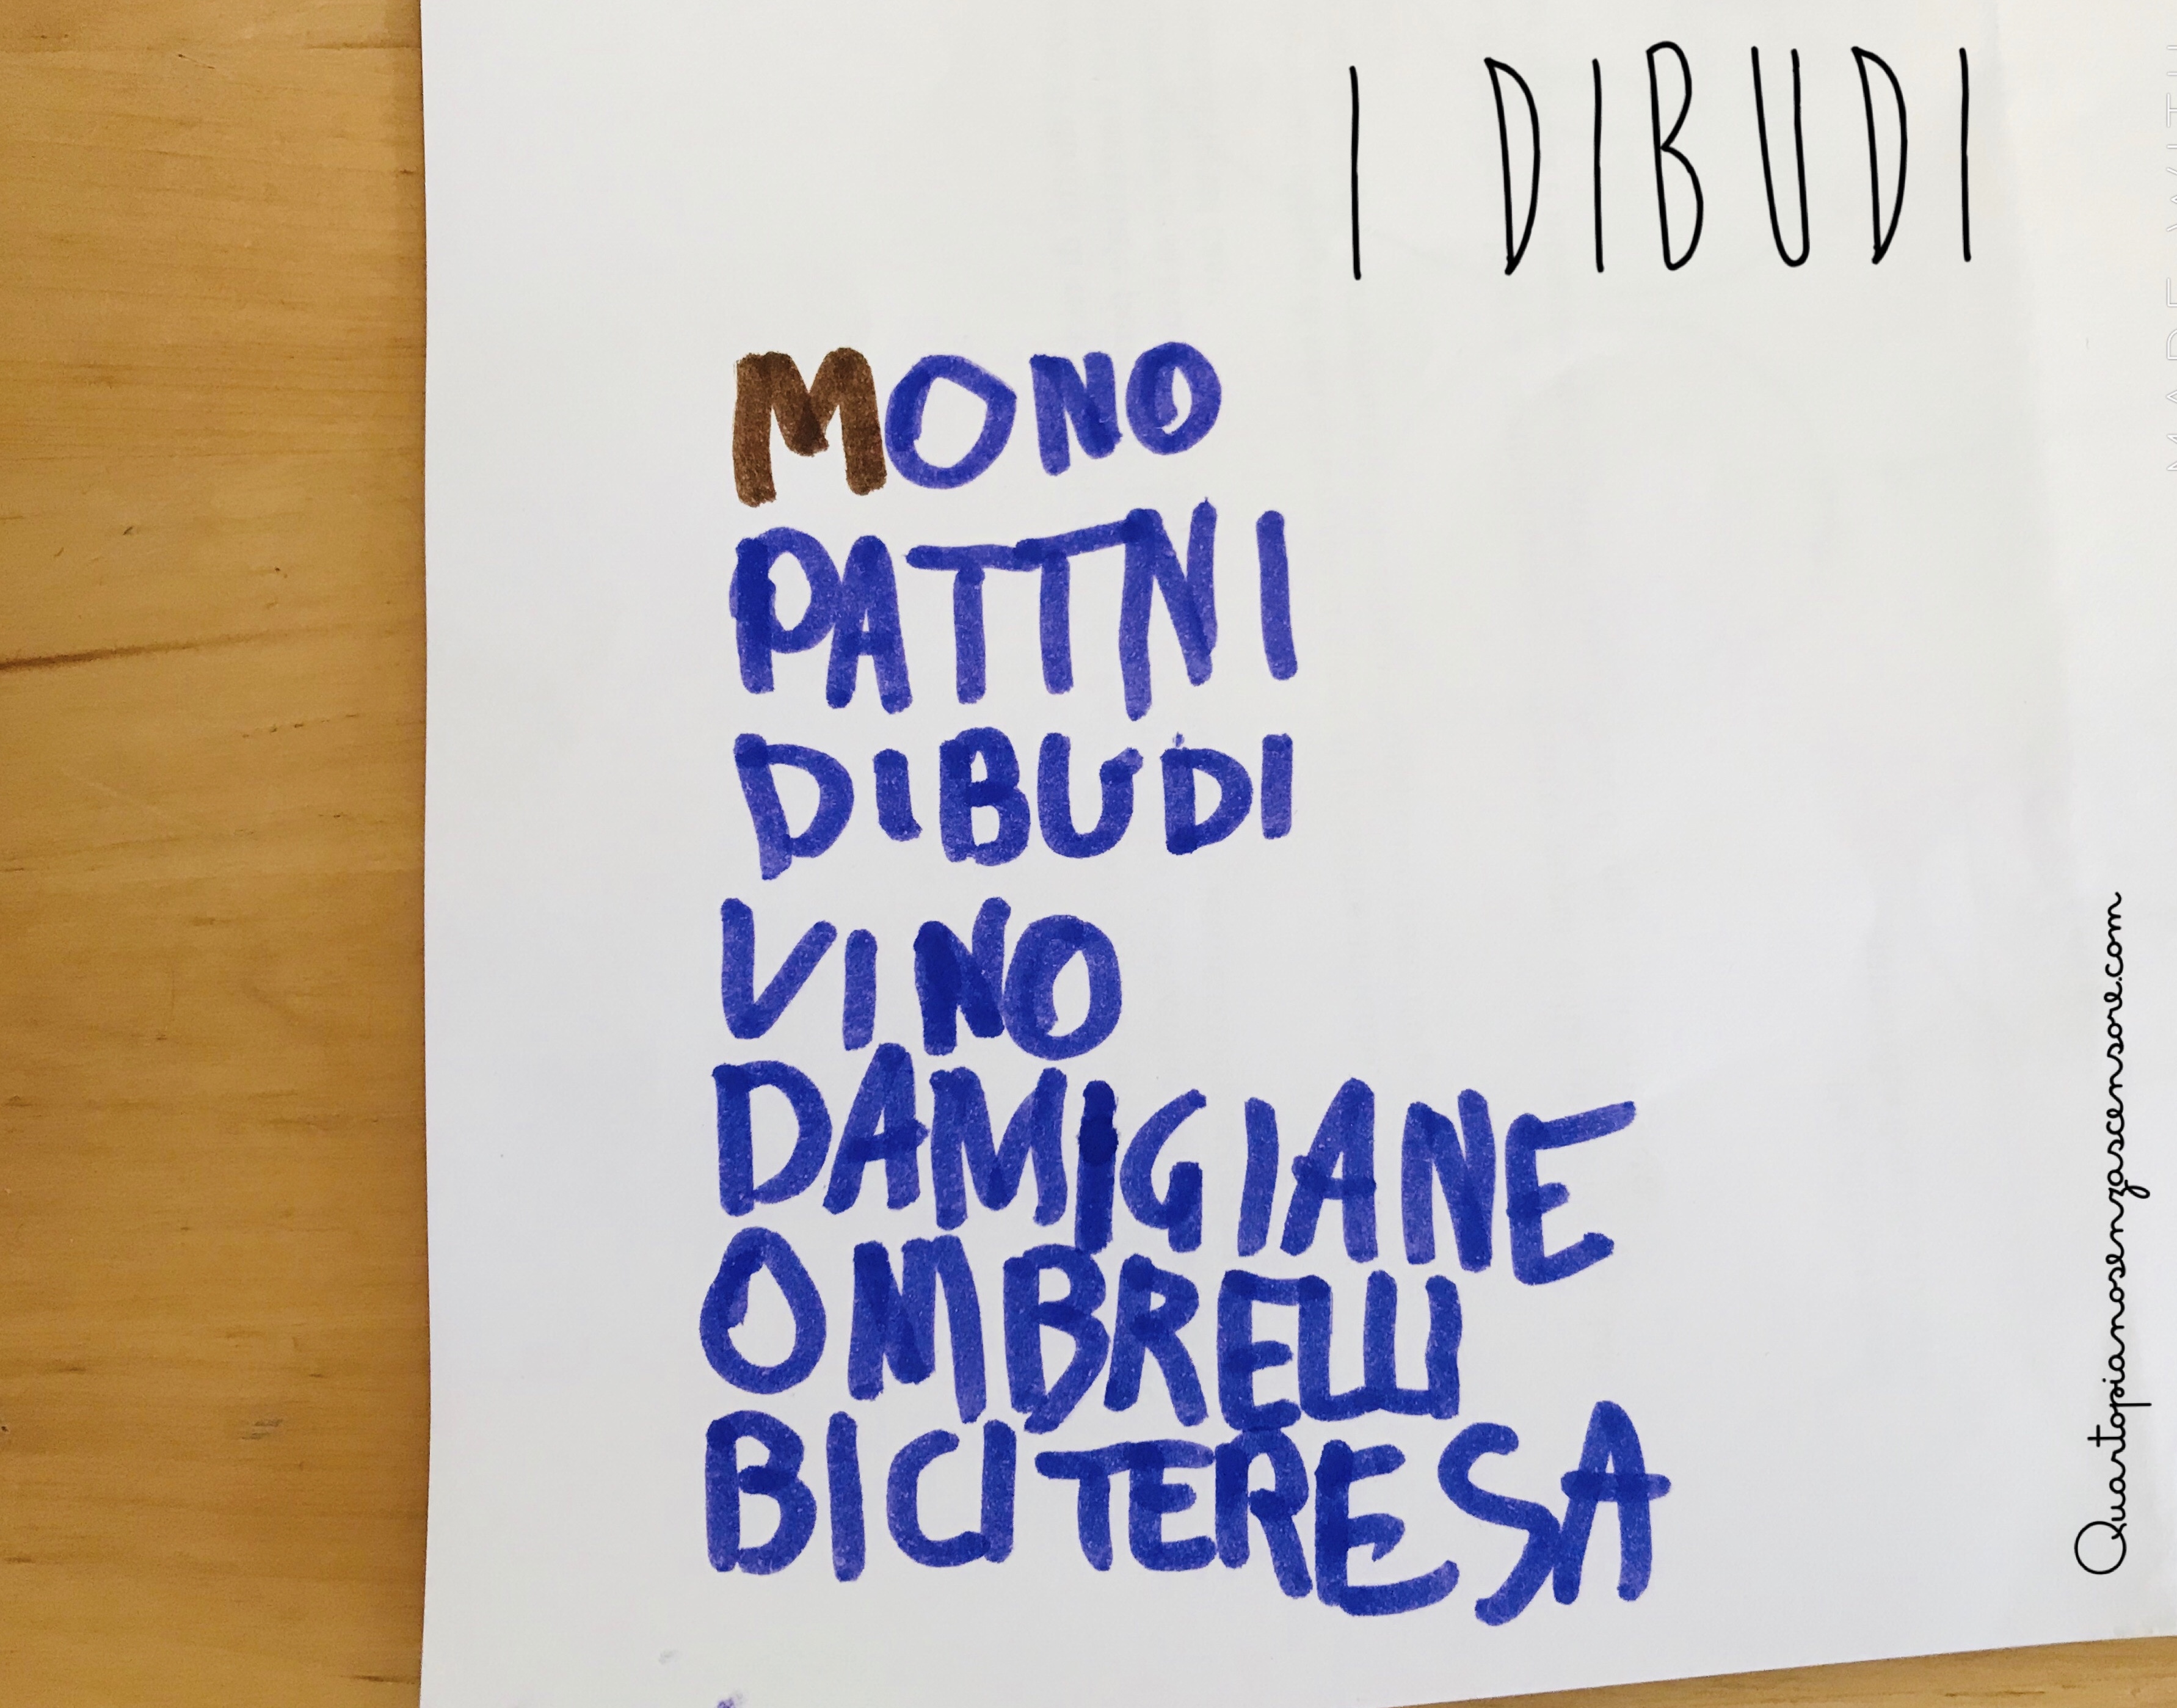 I DIBUDI
MONO
PATTNI
DIBUDI
VINO
DAMIGIANE
OMBRELLI
BICI TERESA
Quartopianosenzascensore.com
MADE WITH